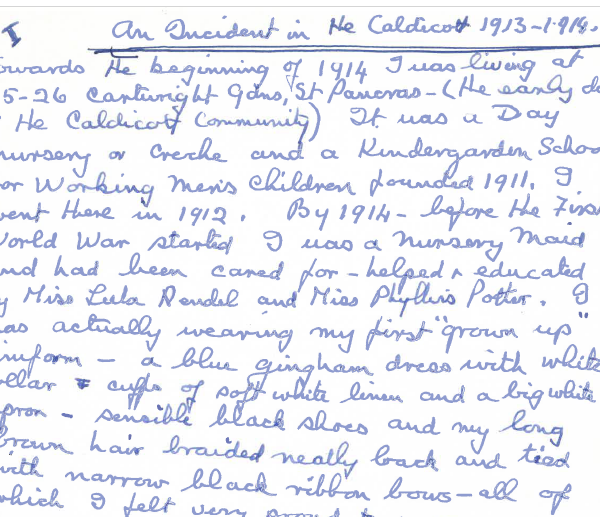 I An Incident in the Caldicott 1913-1914.
owards the beginning of 1914 I was living at
5-26 Cartwright Gdns, St Pancras - (the early da
the Caldicott Community) It was a Day
nursery or Creche and a Kindergarden Schoo
or Working Men's Children founded 1911. I
went there in 1912. By 1914 - before the First
World War started I was a Nursery Maid
nd had been cared for - helped & educated
y Miss Lula Rendel and Miss Phyllis Potter. I
as actually wearing my first "grown up"
uniform - a blue gingham dress with white
ollar & cuffs of soft white linen and a big white
pron - sensible black shoes and my long
brown hair braided neatly back and tied
with narrow black ribbon bows - all of
which I felt very proud